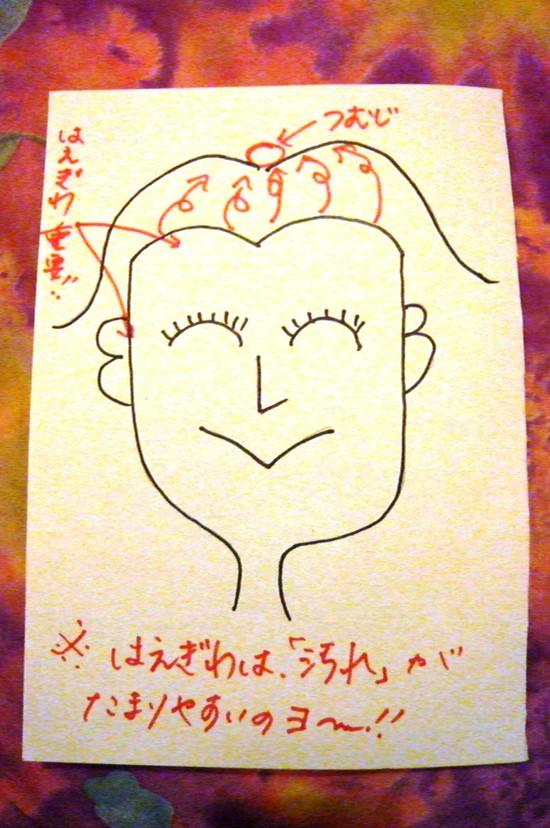 つむじ
はえぎわ重要!!
※はえぎわは、「汚れ」が
たまりやすいのヨ〜!!